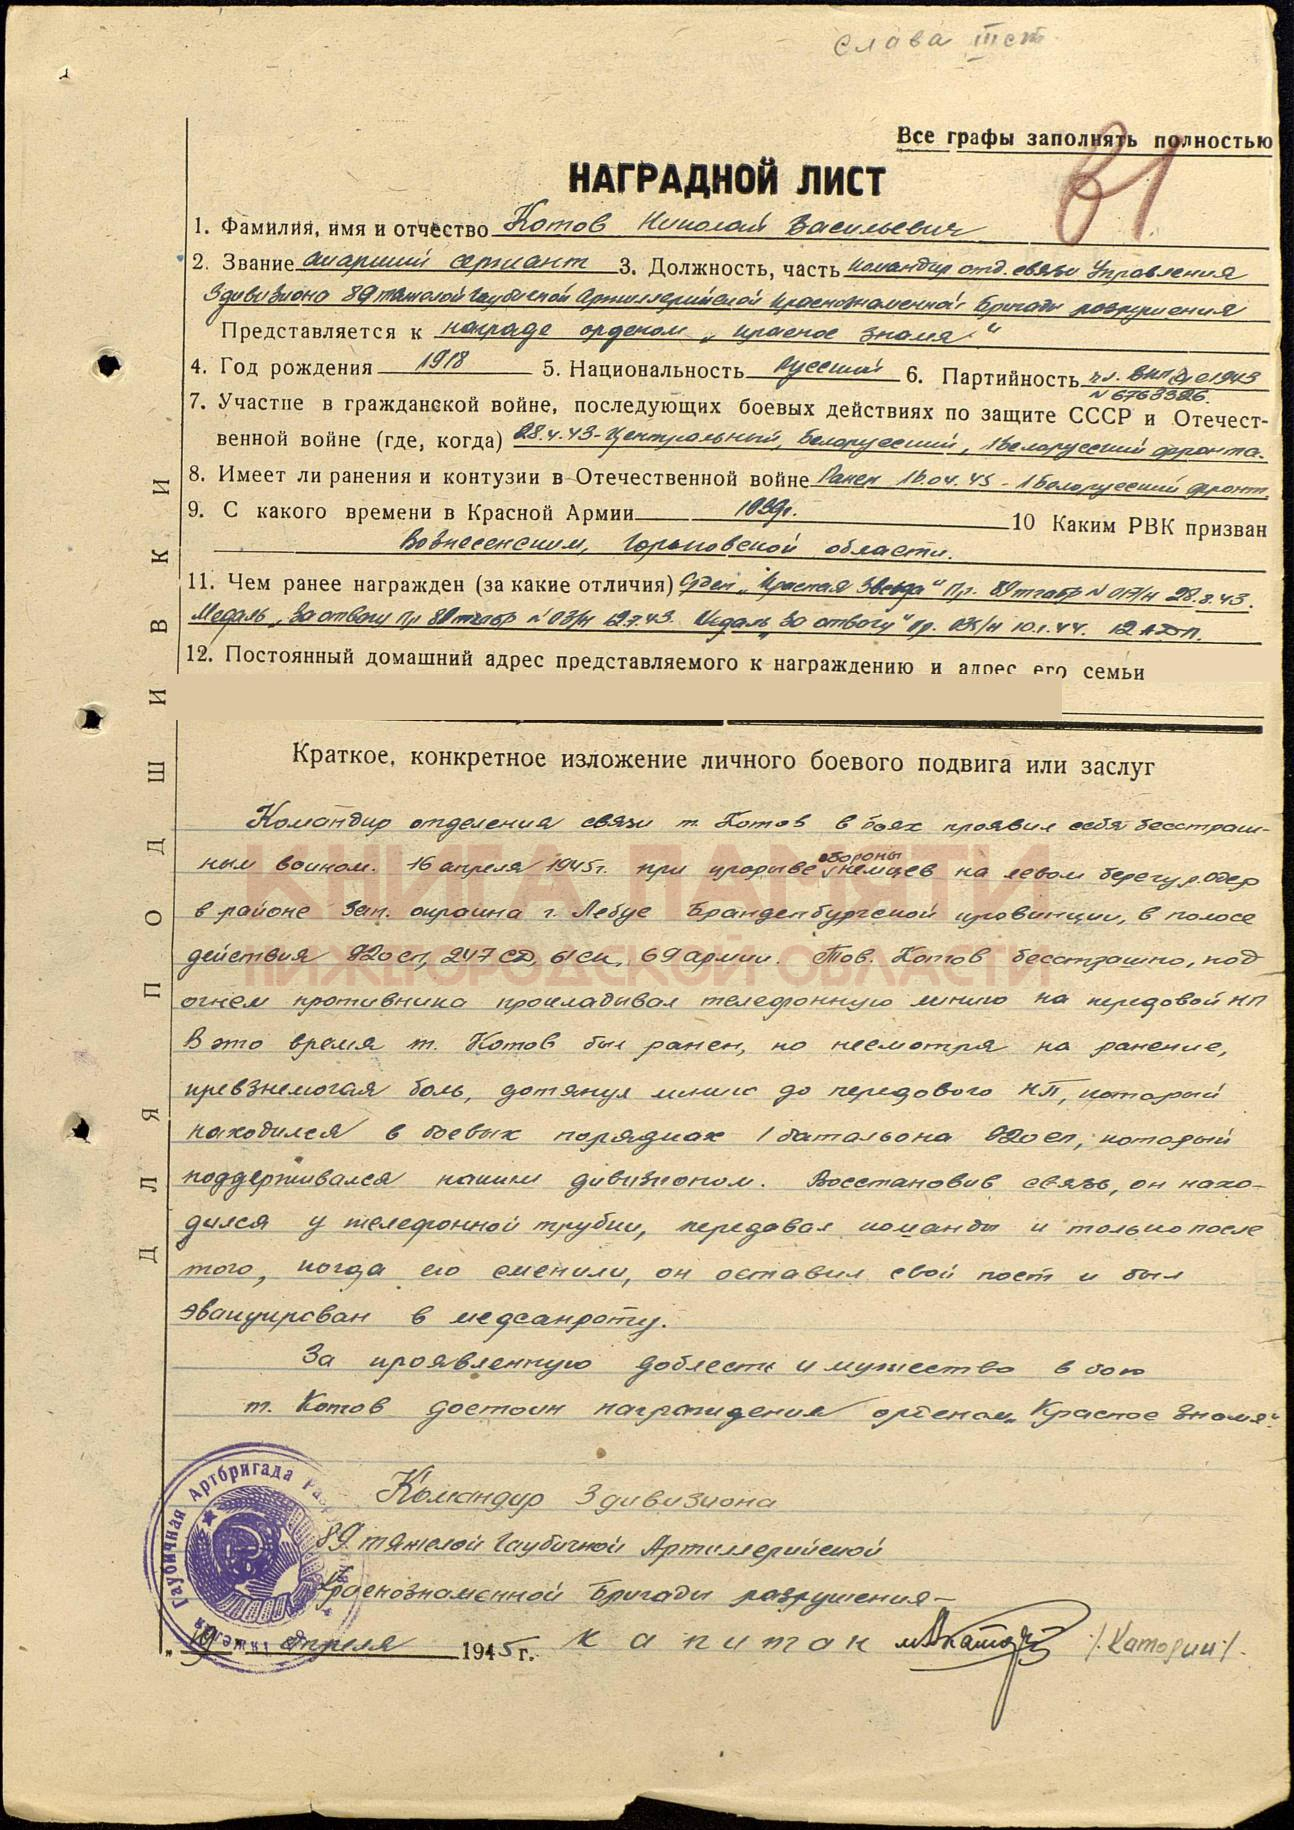 слава III ст
Все графы заполнять полностью
НАГРАДНОЙ ЛИСТ
1. Фамилия, имя и отчество Котов Николай Васильевич
2. Звание старший сержант 3. Должность, часть командир отд. связи Управления
3 дивизиона 89 тяжелой Гаубичной Артиллерийской Краснознаменной Бригады разрушения
Представляется к награде орденом „Красное Знамя“
4. Год рождения 1918 5. Национальность Русский 6. Партийность чл. ВКП(б) с 1943
N 6768326.
7. Участие в гражданской войне, последующих боевых действиях по защите СССР и Отечест-
венной войне (где, когда) 28.4.43-Центральный, Белорусский, 1 Белорусский фронта.
8. Имеет ли ранения и контузии в Отечественной войне Ранен 16.04.45 - 1 Белорусский фронт.
9. С какого времени в Красной Армии 1939г. 10 Каким РВК призван
Вознесенским, Горьковской области.
11. Чем ранее награжден (за какие отличия) Орден „Красная Звезда“ Пр. 89 тгабр N 017/н 28.8.43.
Медаль „За отвагу Пр 89 тгабр N 03/н 12.7.43. Медаль „За отвагу“ Пр. 03/н 10.1.44. 12 АДП.
12. Постоянный домашний адрес представляемого к награждению и адрес его семьи
ДЛЯ ПОДШИВКИ
Краткое, конкретное изложение личного боевого подвига или заслуг
КНИГА ПАМЯТИ
НИЖЕГОРОДСКОЙ ОБЛАСТИ
Командир отделения связи т. Котов в боях проявил себя бесстраш-
ным воином. 16 апреля 1945г. при прорыве обороны немцев на левом берегу р. Одер
в районе Зап. окраина г. Лебус Бранденбургской провинции, в полосе
действия 920 сп, 247 СД, 61 ск, 69 армии. Тов. Котов бесстрашно, под
огнем противника прокладывал телефонную линию на передовой НП
В это время т. Котов был ранен, но несмотря на ранение,
превзнемогая боль, дотянул линию до передового НП, который
находился в боевых порядках 1 батальона 920 сп, который
поддерживался нашим дивизионом. Восстановив связь, он нахо-
дился у телефонной трубки, передавал команды и только после
того, когда его сменили, он оставил свой пост и был
эвакуирован в медсанроту.
За проявленную доблесть и мужество в бою
т. Котов достоин награждения орденом „Красное Знамя“.
Командир 3 дивизиона
89 тяжелой Гаубичной Артиллерийской
Краснознаменной Бригады разрушения-
„19 апреля 1945 г. капитан /Катодин/.
Тяжелая Гаубичная Артбригада